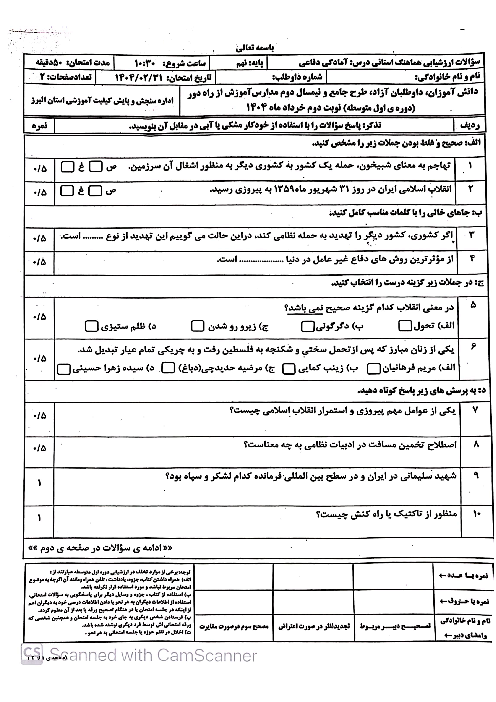 باسمه تعالی
سؤالات ارزشیابی هماهنگ استانی درس: آمادگی دفاعی
پایه: نهم
ساعت شروع: ۱۰:۳۰
مدت امتحان: ۵۰دقیقه
نام و نام خانوادگی:
شماره داوطلب:
تاریخ امتحان: ۱۴۰۴/۰۲/۳۱
تعدادصفحات: ۲
دانش آموزان، داوطلبان آزاد، طرح جامع و نیمسال دوم مدارس آموزش از راه دور
(دوره ی اول متوسطه) نوبت دوم خرداد ماه ۱۴۰۴
اداره سنجش و پایش کیفیت آموزشی استان البرز
ردیف
تذکر: پاسخ سؤالات را با استفاده از خودکار مشکی یا آبی در مقابل آن بنویسید.
نمره
الف: صحیح و غلط بودن جملات زیر را مشخص کنید.
۱ تهاجم به معنای شبیخون، حمله یک کشور به کشوری دیگر به منظور اشغال آن سرزمین. ص غ ۰/۵
۲ انقلاب اسلامی ایران در روز ۳۱ شهریور ماه ۱۳۵۹ به پیروزی رسید. ص غ ۰/۵
ب: جاهای خالی را با کلمات مناسب کامل کنید.
۳ اگر کشوری، کشور دیگر را تهدید به حمله نظامی کند، دراین حالت می گوییم این تهدید از نوع ......... است. ۰/۵
۴ از مؤثرترین روش های دفاع غیر عامل در دنیا .................... است. ۰/۵
ج: در جملات زیر گزینه درست را انتخاب کنید.
۵ در معنی انقلاب کدام گزینه صحیح نمی باشد؟ ۰/۵
الف) تحول ب) دگرگونی ج) زیرو رو شدن د) ظلم ستیزی
۶ یکی از زنان مبارز که پس ازتحمل سختی و شکنجه به فلسطین رفت و به چریکی تمام عیار تبدیل شد. ۰/۵
الف) مریم فرهانیان ب) زینب کمایی ج) مرضیه حدیدچی(دباغ) د) سیده زهرا حسینی
د: به پرسش های زیر پاسخ کوتاه دهید.
۷ یکی از عوامل مهم پیروزی و استمرار انقلاب اسلامی چیست؟ ۰/۵
۸ اصطلاح تخمین مسافت در ادبیات نظامی به چه معناست؟ ۰/۵
۹ شهید سلیمانی در ایران و در سطح بین المللی فرمانده کدام لشکر و سپاه بود؟ ۱
۱۰ منظور از تاکتیک یا راه کنش چیست؟ ۱
«« ادامه ی سؤالات در صفحه ی دوم »»
نمره با عدد:←
نمره با حروف:←
نام و نام خانوادگی وامضای دبیر:←
تصحیح دبیر مربوط
تجدیدنظر در صورت اعتراض
مصحح سوم درصورت مغایرت
CS Scanned with CamScanner